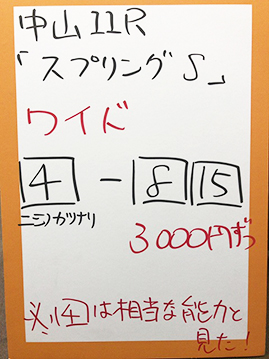 中山11R
「スプリングS」
ワイド
4 - 8 15
ニシノカツナリ
3000円ずつ
※4は相当な能力と
見た!